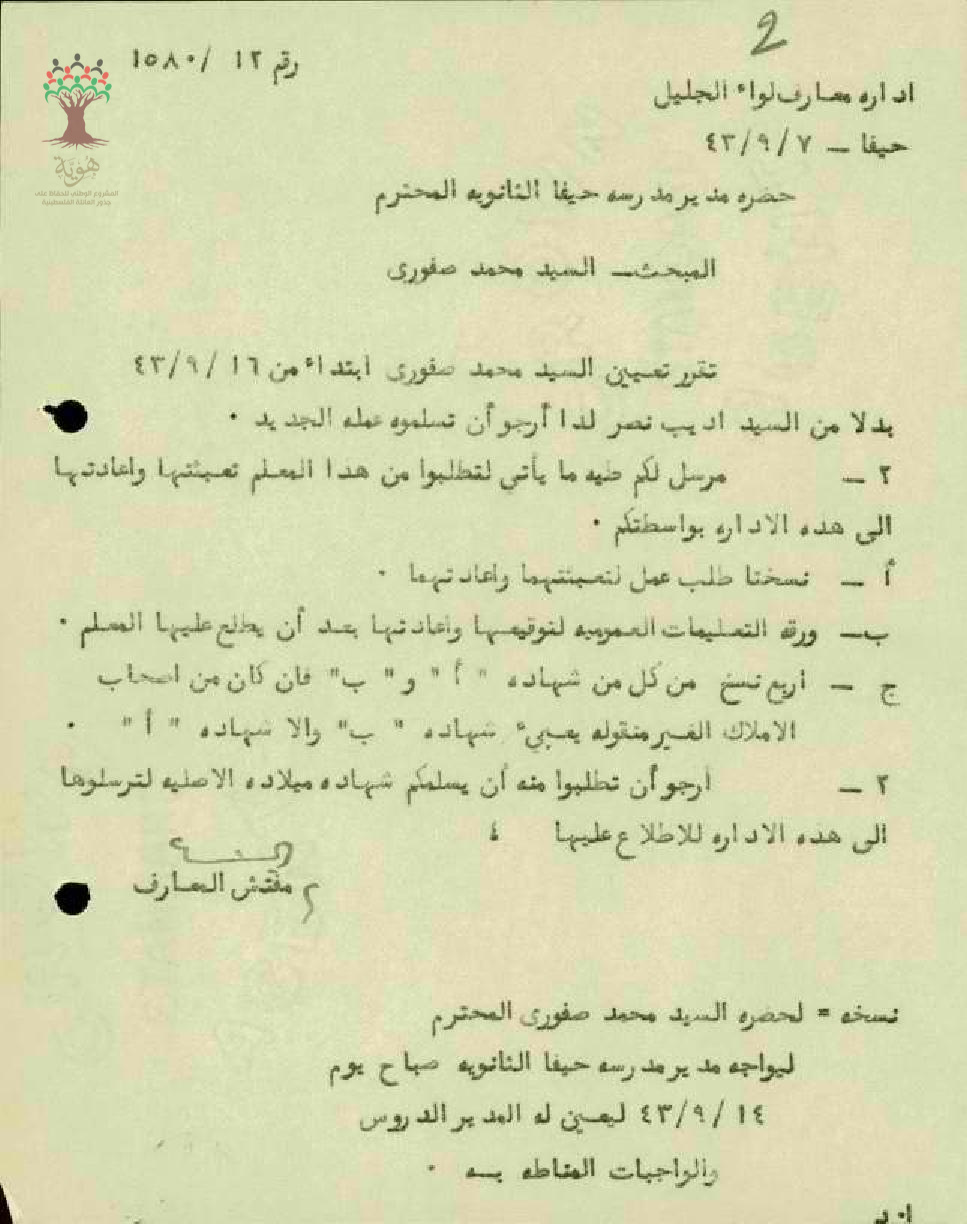 2
رقم ١٢ / ١٥٨٠
اداره معارف لواء الجليل
حيفا – ٤٣/٩/٧
حضره مدير مدرسه حيفا الثانويه المحترم
المبحث – السيد محمد صفورى
تقرر تعيين السيد محمد صفورى ابتداء من ٤٣/٩/١٦
بدلا من السيد اديب نصر لدا أرجو أن تسلموه عمله الجديد .
٢ – مرسل لكم طيه ما يأتى لتطلبوا من هدا المعلم تعبئتها واعادتها
الى هده الاداره بواسطتكم .
أ – نسختا طلب عمل لتعبئتهما واعادتهما .
ب – ورقه التعليمات العموميه لتوقيعها واعادتها بعد أن يطلع عليها المعلم .
ج – اربع نسخ من كل من شهاده " أ " و " ب" فان كان من اصحاب
الاملاك الغير منقوله يعبيء شهاده " ب" والا شهاده " أ " .
٢ – أرجو أن تطلبوا منه أن يسلمكم شهاده ميلاده الاصليه لترسلوها
الى هده الاداره للاطلاع عليها ٤
مفتش المعارف
نسخه = لحضره السيد محمد صفورى المحترم
ليواجه مدير مدرسه حيفا الثانويه صباح يوم
٤٣/٩/١٤ ليعين له المدير الدروس
والواجبات المناطه بـه .
هوية
المشروع الوطني للحفاظ على
جذور العائلة الفلسطينية